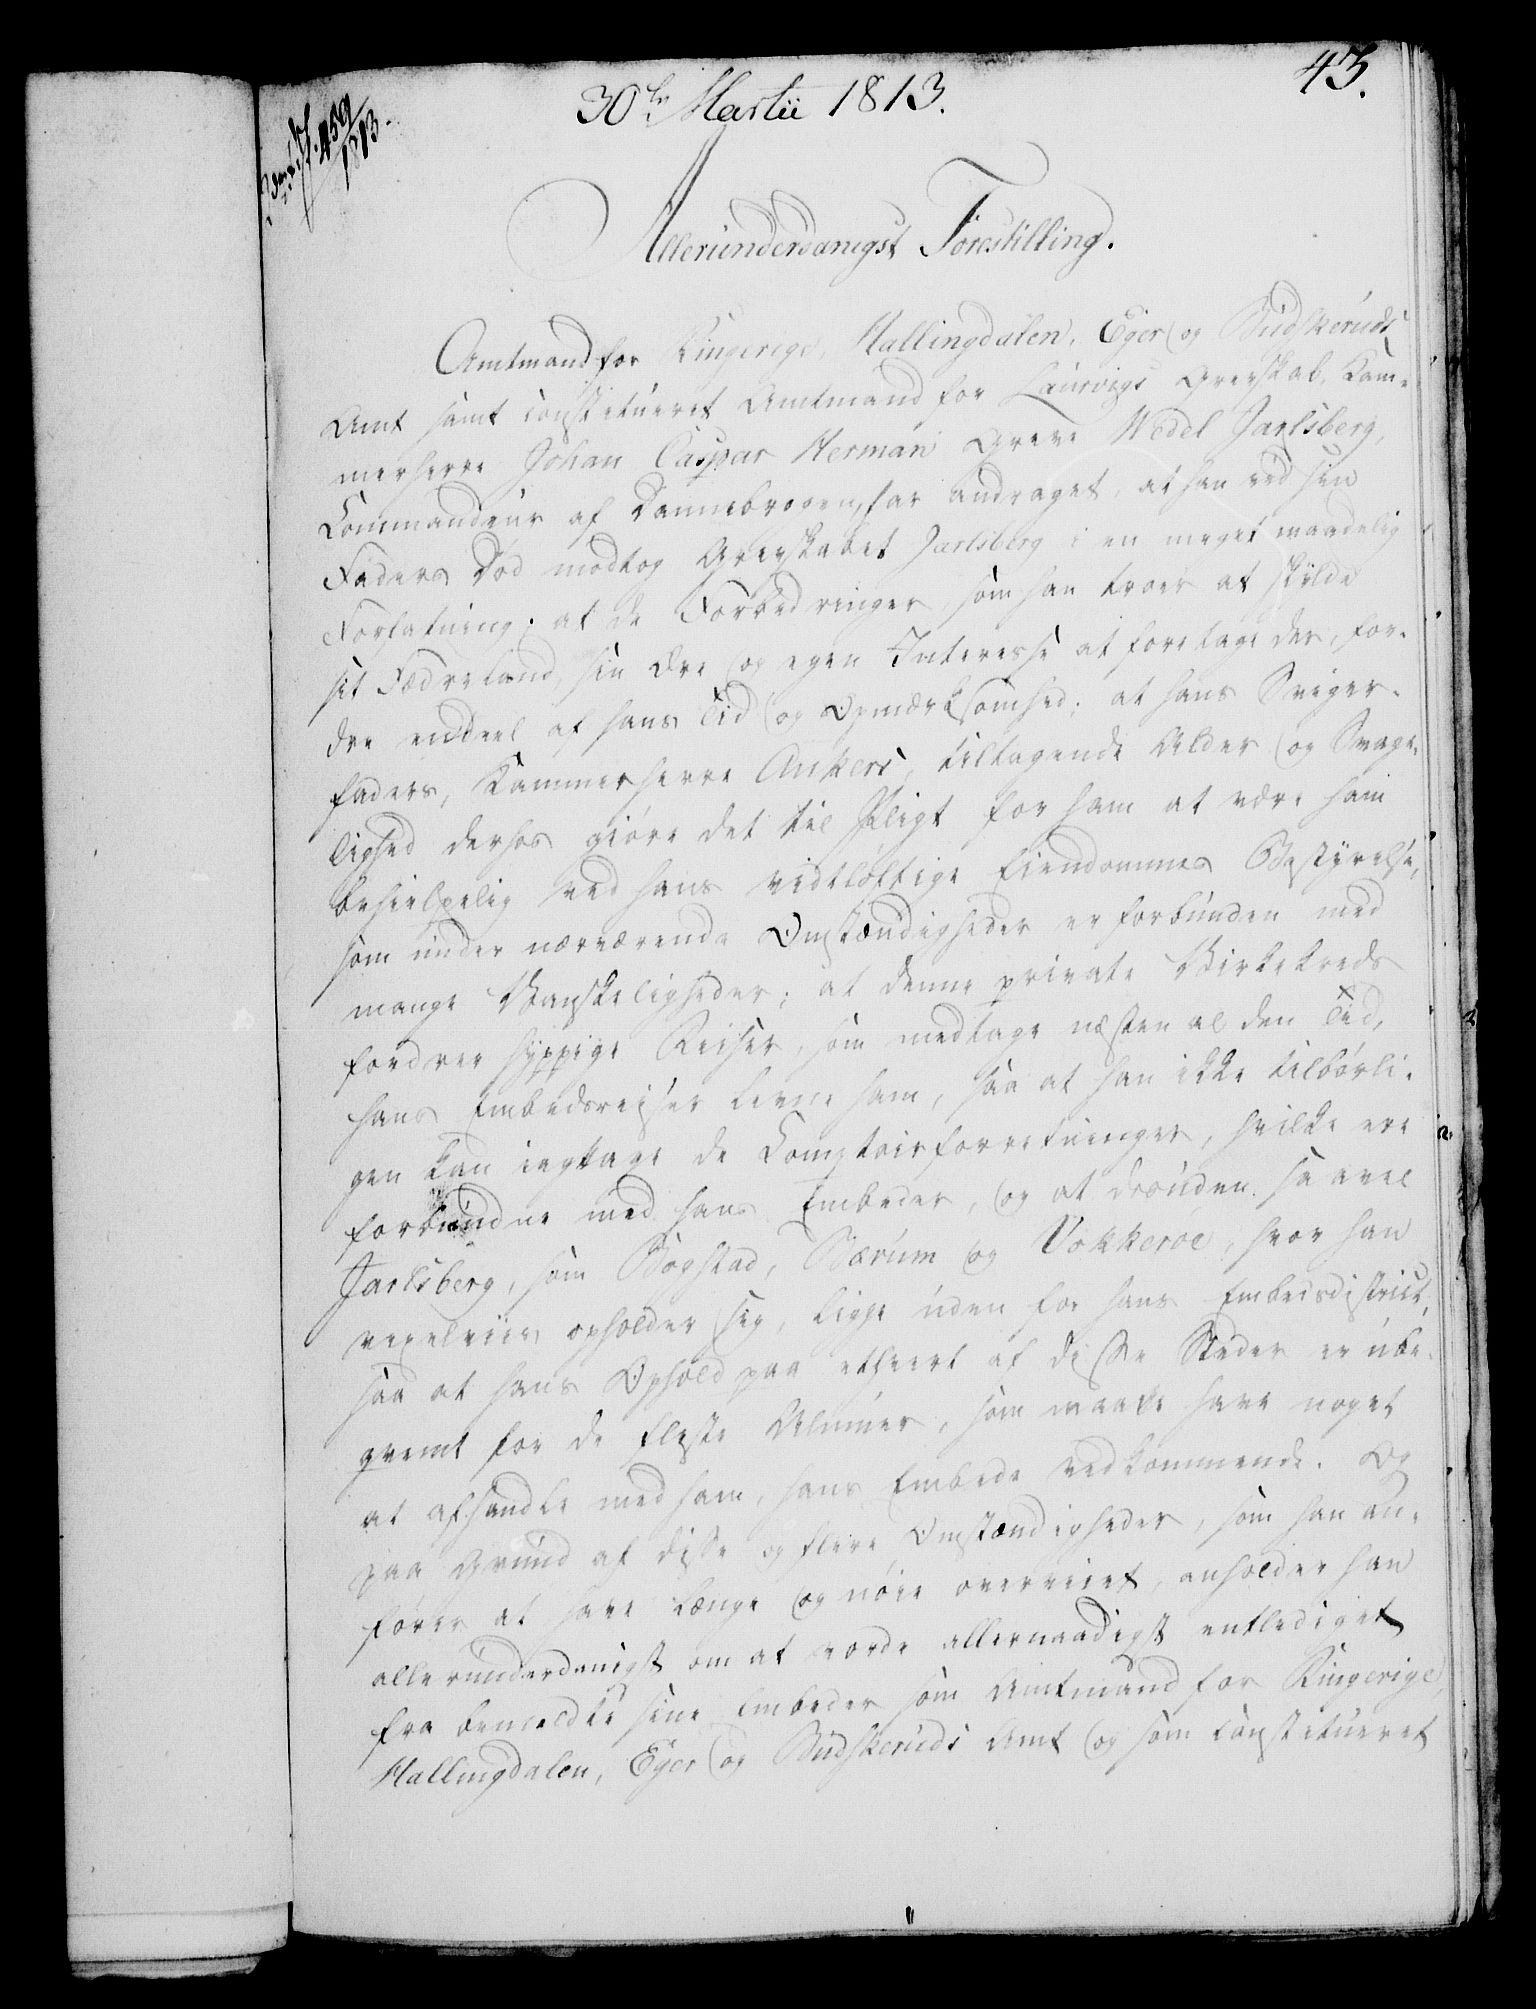 43.
30te Martii 1813.
459/1813.
Allerunderdanigst Forestilling.
Amtmand for Ringerige, Hallingdalen, Eger og Budskeruds
Amt samt constitueret Amtmand for Laurvigs Grevskab, Kam-
merherre Johan Caspar Herman Greve Wedel Jarlsberg,
Commandeur af Dannebrogen, har andraget, at han ved sin
Faders Død modtog Grevskabet Jarlsberg i en meget maadelig
Forfatning; at de Forbedringer, som han troer at skylde
sit Fædreland, sin Ære og egen Interesse at foretage der, for-
dre endeel af hans Tid og Opmærksomhed; at hans Sviger-
faders, Kammerherre Ankers, tiltagende Alder og Svage-
lighed derhos giøre det til Pligt for ham at være ham
behielpelig ved hans vidtløftige Eiendommes Bestyrelse,
som under nærværende Omstændigheder er forbunden med
mange Vanskeligheder; at denne private Virkekreds
fordrer hyppige Reiser, som medtage næsten al den Tid,
hans Embedsreiser levne ham, saa at han ikke tilbørli-
gen kan iagttage de Comptoirforretninger, hvilke ere
forbundne med hans Embeder, og at desuden saavel
Jarlsberg, som Bogstad, Bærum og Vækkerøe, hvor han
vexelviis opholder sig, ligge uden for hans Embedsdistrict,
saa at hans Ophold paa ethvert af disse Steder er ube-
qvemt for de fleste Almues, som maatte have noget
at afhandle med ham, hans Embede vedkommende. Og
paa Grund af disse og flere Omstændigheder, som han an-
fører at have længe og nøie overveiet, anholder han
allerunderdanigst om at vorde allernaadigst entlediget
fra bemeldte sine Embeder som Amtmand for Ringerige,
Hallingdalen, Eger og Budskeruds Amt og som constitueret